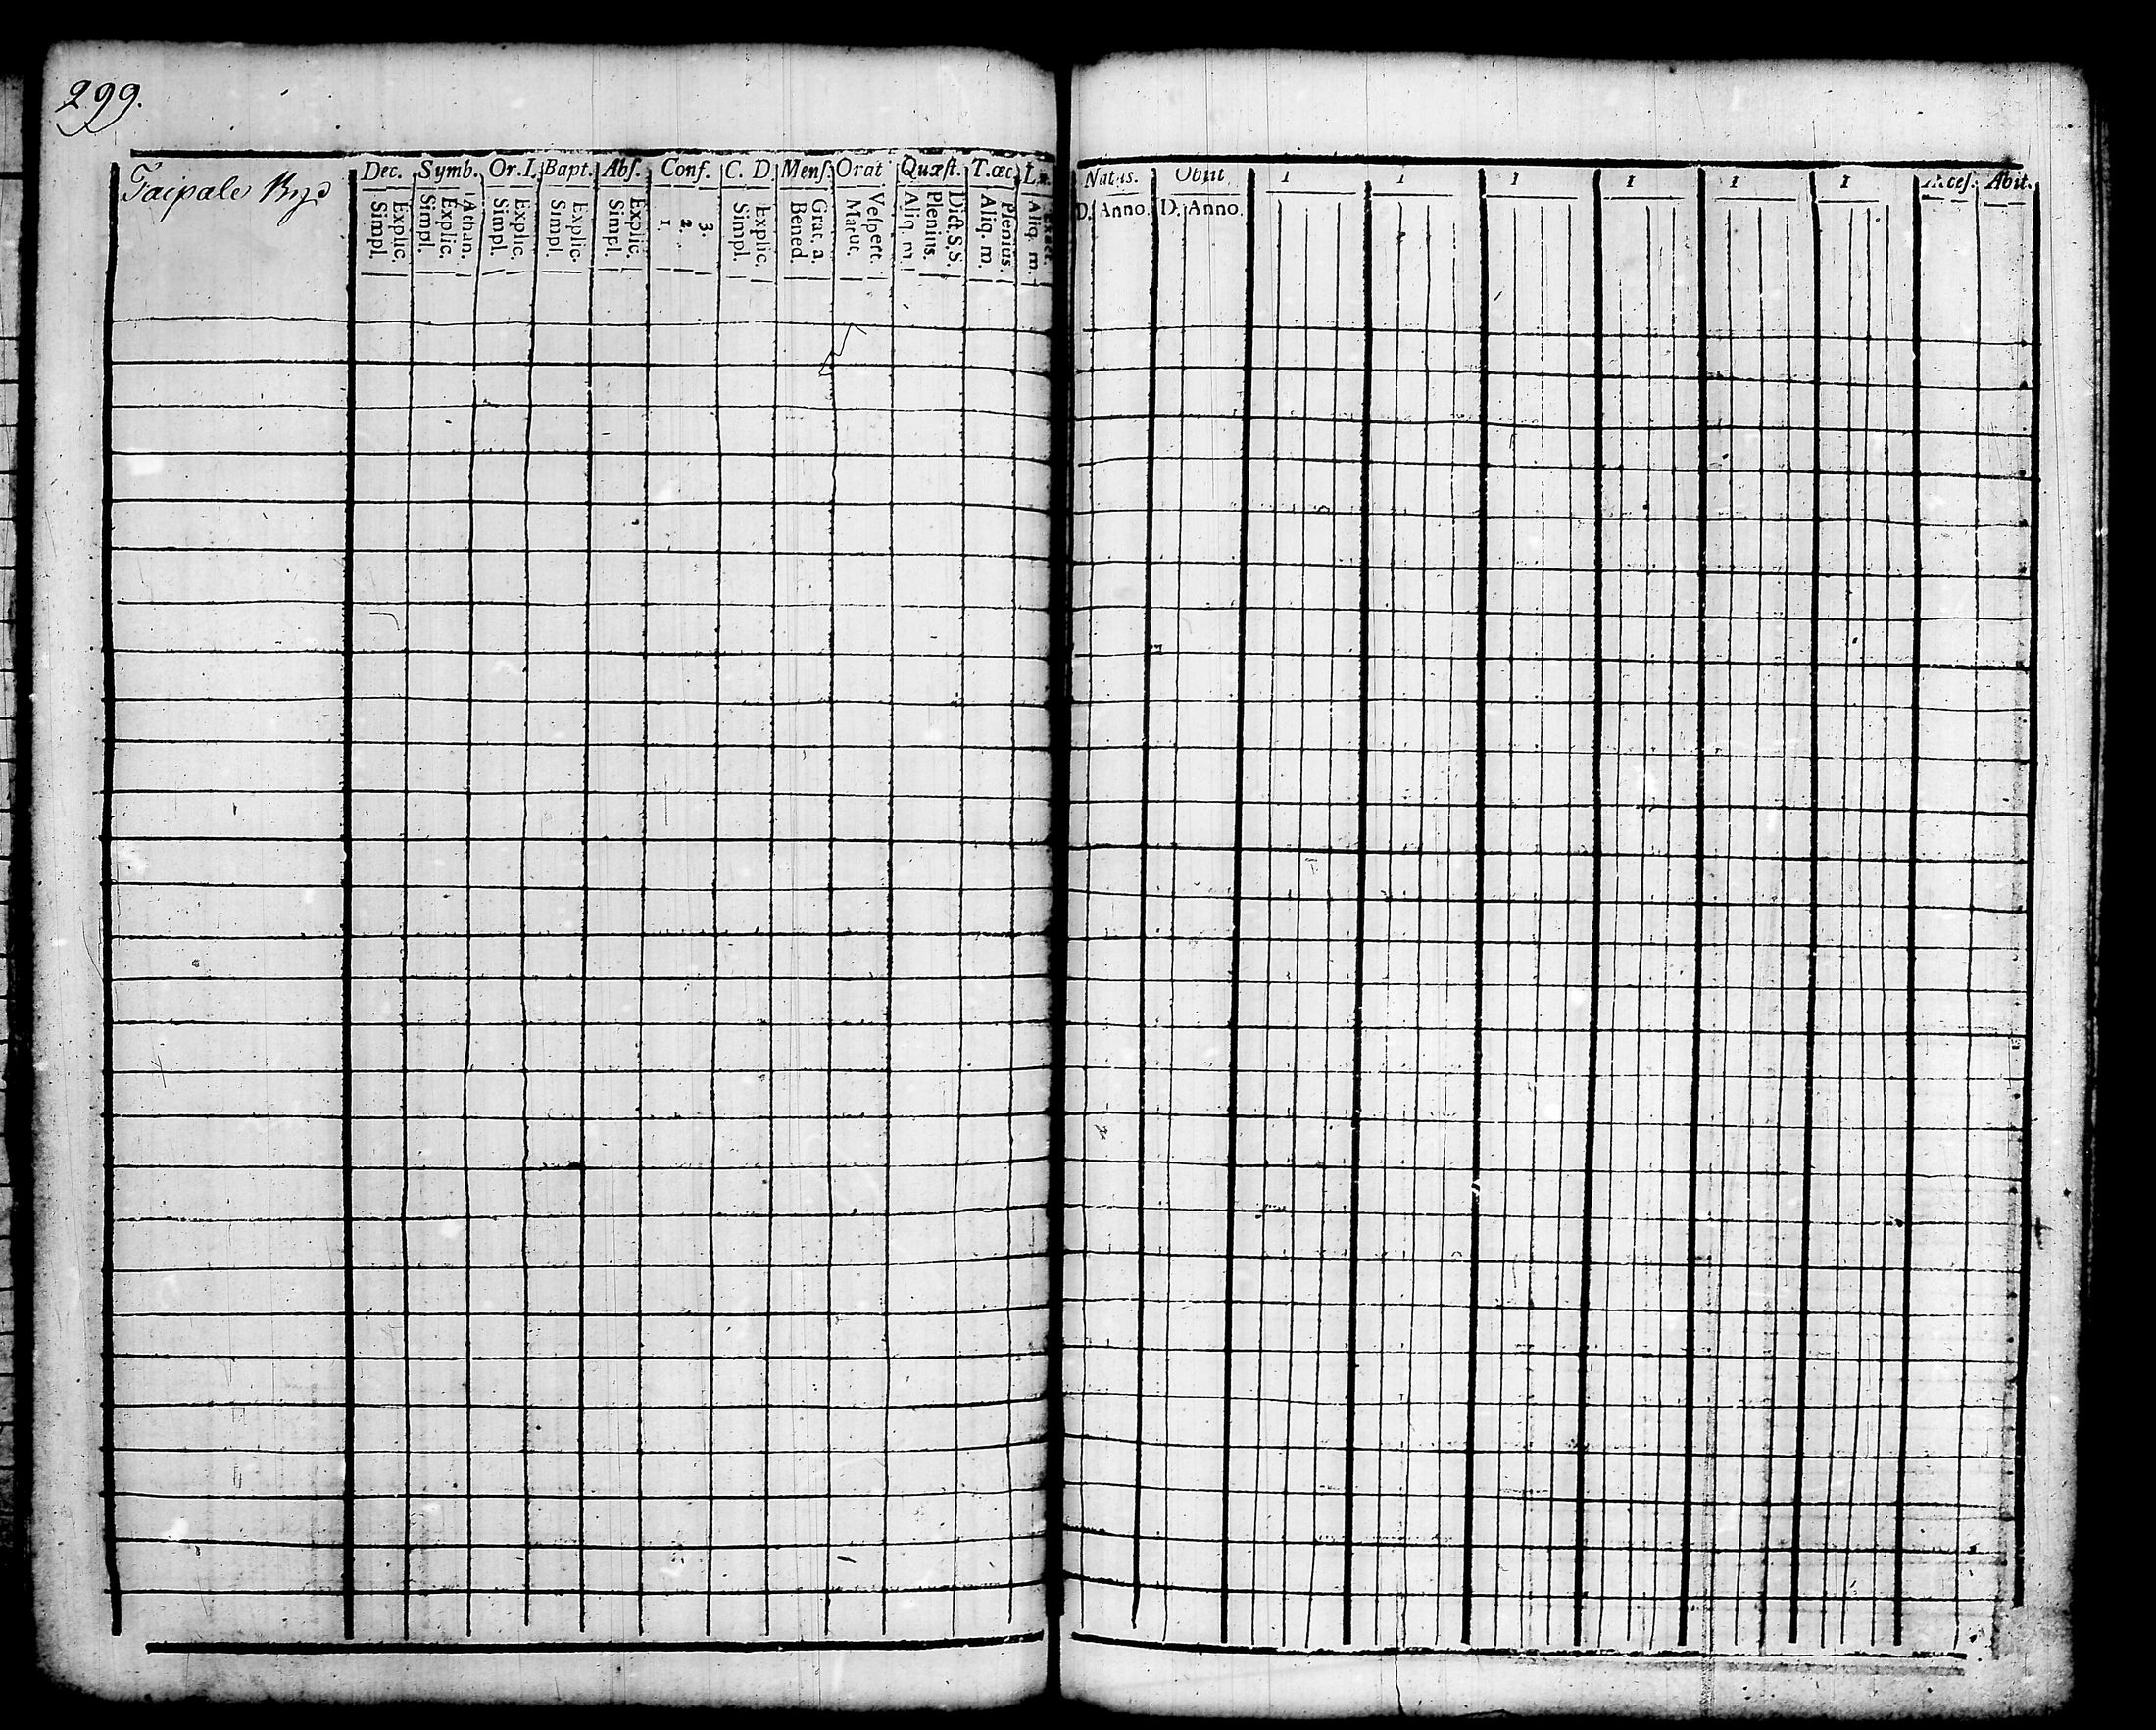 299.
Taipale By
Dec. Symb. Or. I. Bapt. Abſ. Conf. C. D. Menſ. Orat Quæſt. T. œc.
Explic. Simpl. Athan. Explic. Simpl. Explic. Simpl. Explic. Simpl. Explic. Simpl. 3. 2. 1. Explic. Simpl. Grat. a. Bened Veſpert. Matut. Dict. S. S. Plenius. Aliq. m. Plenius. Aliq. m. Aliq. m.
Natus. Obiit 1 1 1 1 1 1 Acceſ. Abit.
D. Anno. D. Anno.